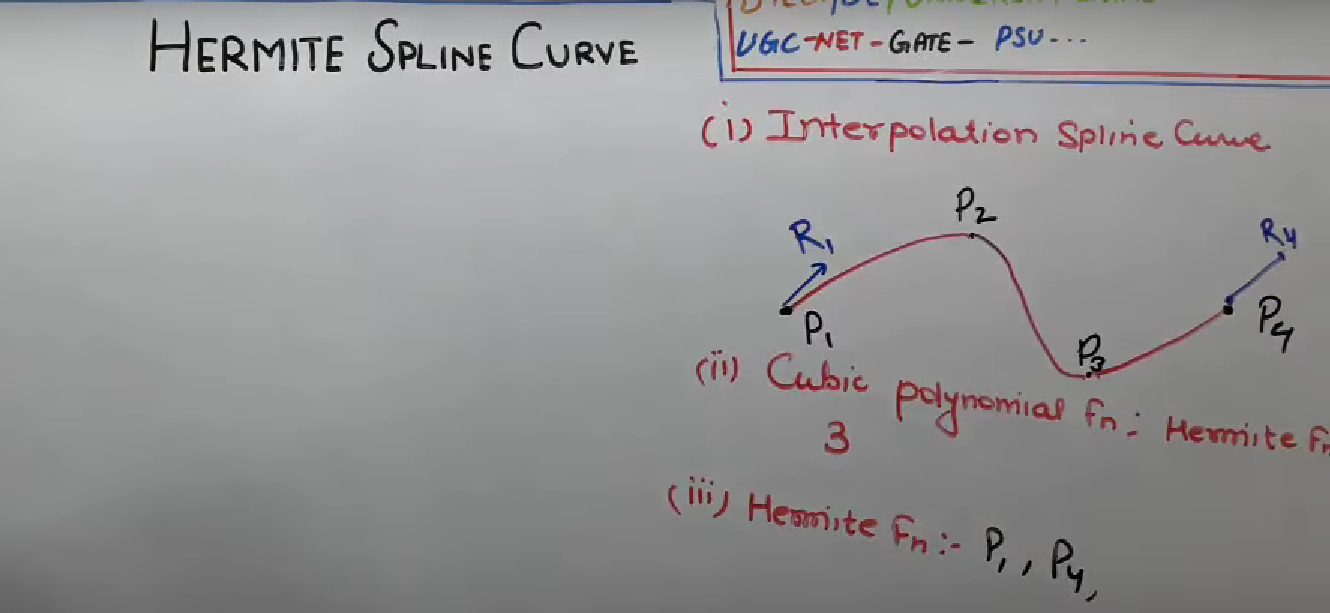 HERMITE SPLINE CURVE
UGC-NET-GATE- PSU---
(i) Interpolation Spline Curve
P2
R1
R4
P1
P4
P3
(ii) Cubic polynomial fn: Hermite fn
3
(iii) Hermite Fn:- P1, P4,